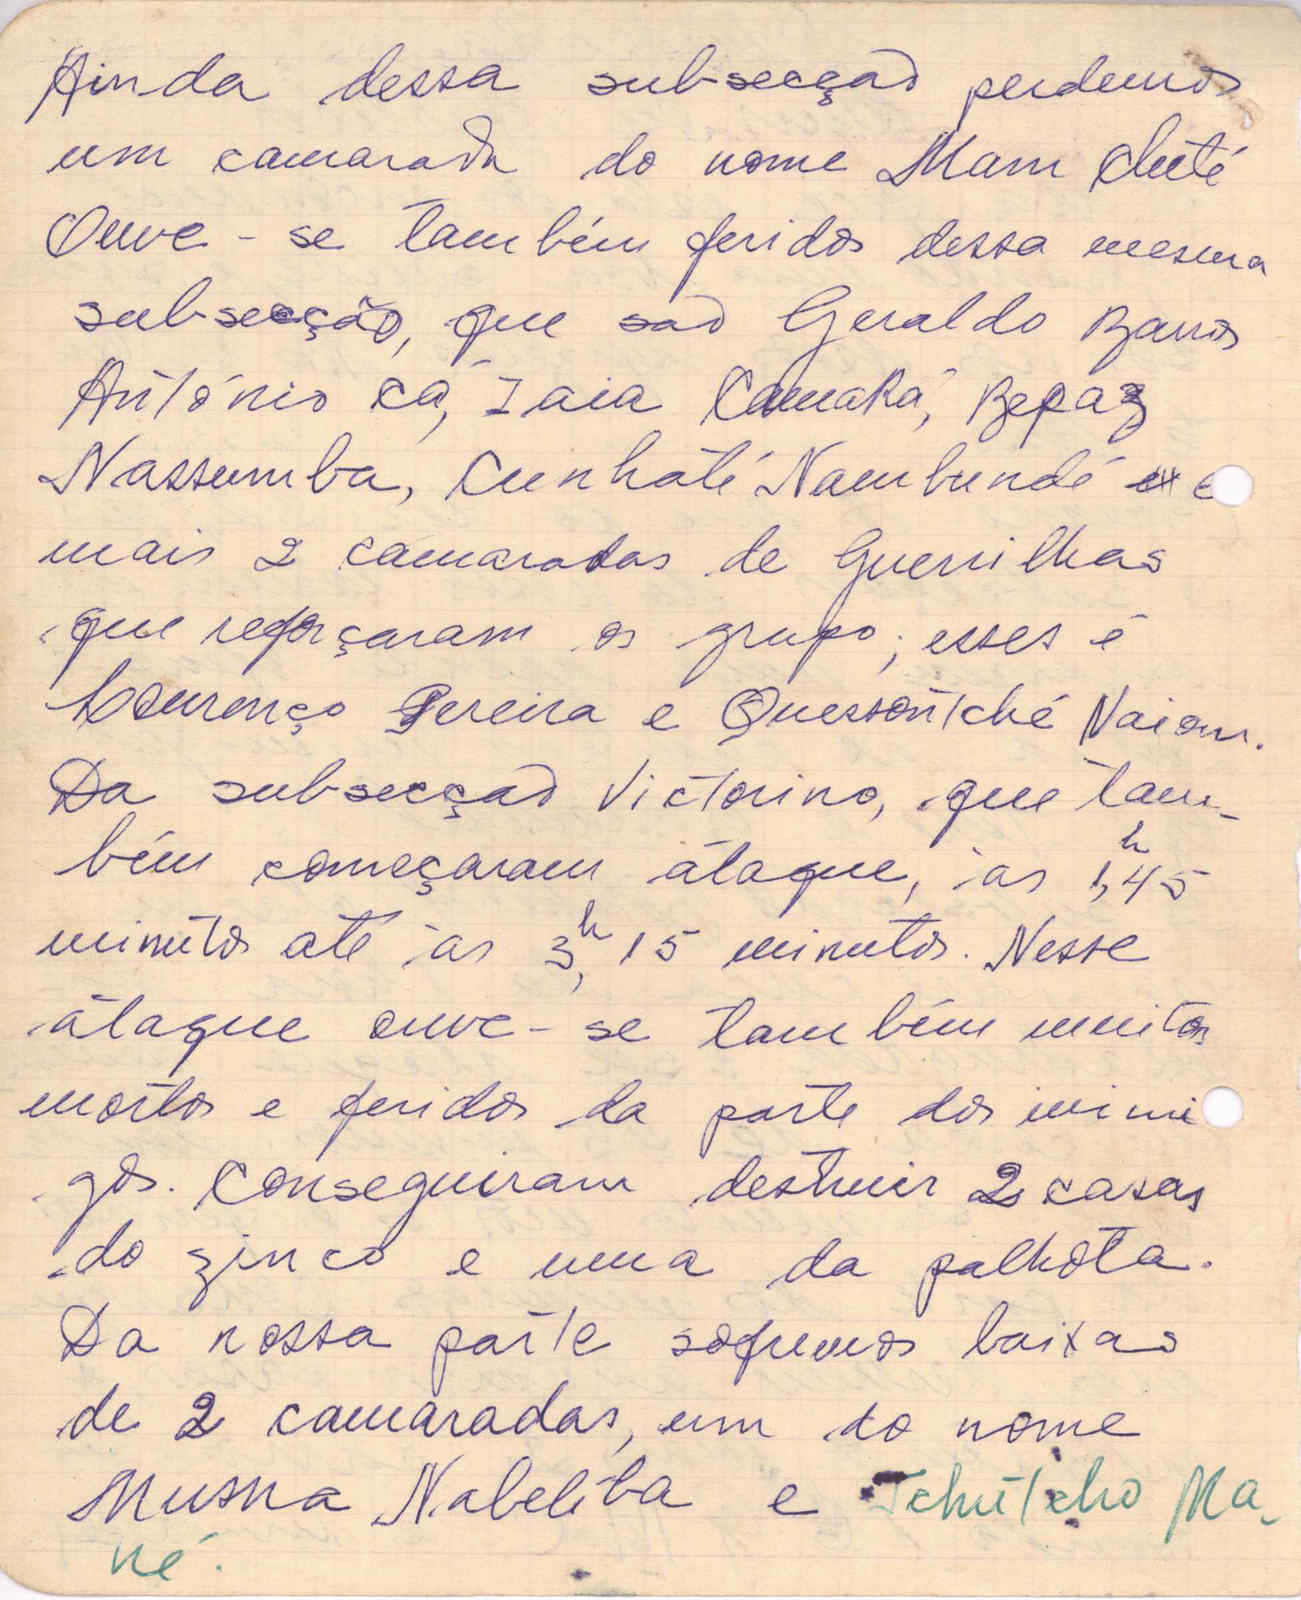 Ainda dessa subsecção perdemos
um camarada do nome Mam Chuté
Ouve-se também feridos dessa mesma
subsecção, que são Geraldo Barros
António Cá, Iaia Camará, Bepaz
Nassumba, Cunhaté Nambundé e
mais 2 camaradas de Guerrilhas
que reforçaram os grupo, esses é
Lourenço Pereira e Quessontché Naiom.
Da subsecção Victorino, que tam-
bém começaram átaque, às 1h,45
minutos até às 3h,15 minutos. Nesse
átaque ouve-se também muitos
mortos e feridos da parte dos inimi
gos. Conseguiram destruir 2 casas
do zinco e uma da palhota.
Da nossa parte sofremos baixas
de 2 camaradas, um do nome
Musna Nabeliba e Tchutcho Ma-
né.